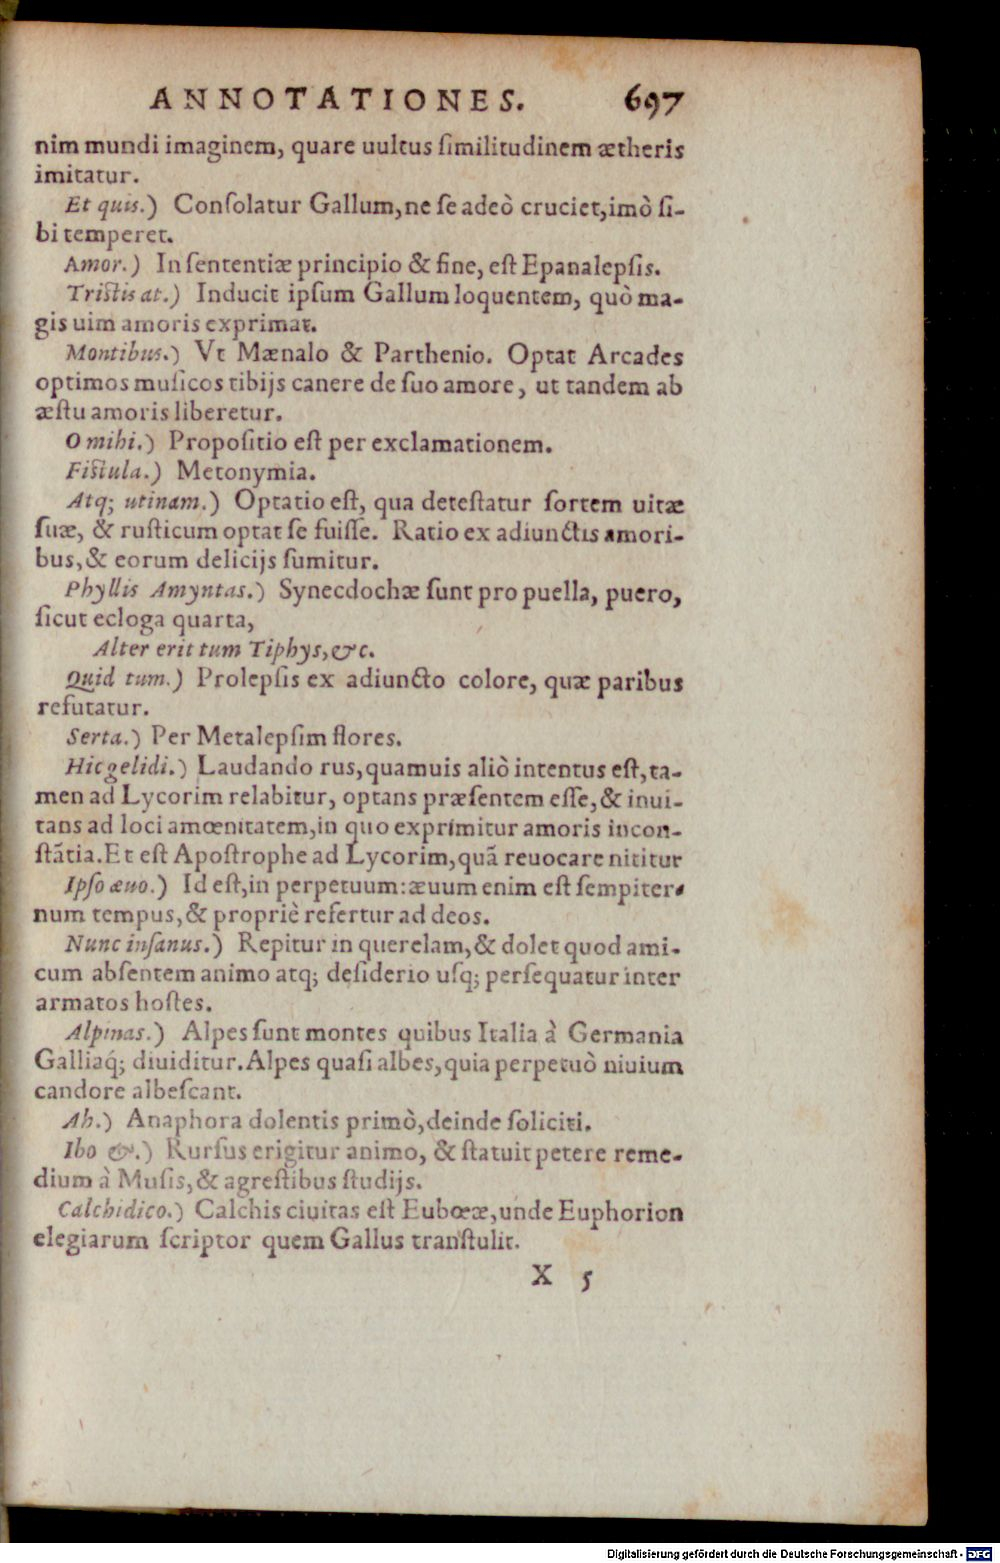 ANNOTATIONES. 697
nim mundi imaginem, quare uultus ſimilitudinem ætheris
imitatur.
Et quis.) Conſolatur Gallum, ne ſe adeò cruciet, imò ſi-
bi temperet.
Amor.) In ſententiæ principio & fine, eſt Epanalepſis.
Triſtis at.) Inducit ipſum Gallum loquentem, quò ma-
gis uim amoris exprimat.
Montibus.) Vt Mænalo & Parthenio. Optat Arcades
optimos muſicos tibijs canere de ſuo amore, ut tandem ab
æſtu amoris liberetur.
O mihi.) Propoſitio eſt per exclamationem.
Fiſtula.) Metonymia.
Atq; utinam.) Optatio eſt, qua deteſtatur ſortem uitæ
ſuæ, & ruſticum optat ſe fuiſſe. Ratio ex adiunctis amori-
bus, & eorum delicijs ſumitur.
Phyllis Amyntas.) Synecdochæ ſunt pro puella, puero,
ſicut ecloga quarta,
Alter erit tum Tiphys, &c.
Quid tum.) Prolepſis ex adiuncto colore, quæ paribus
refutatur.
Serta.) Per Metalepſim flores.
Hic gelidi.) Laudando rus, quamuis aliò intentus eſt, ta-
men ad Lycorim relabitur, optans præſentem eſſe, & inui-
tans ad loci amœnitatem, in quo exprimitur amoris incon-
ſtātia. Et eſt Apoſtrophe ad Lycorim, quā reuocare nititur
Ipſo æuo.) Id eſt, in perpetuum: æuum enim eſt ſempiter-
num tempus, & propriè refertur ad deos.
Nunc inſanus.) Repitur in querelam, & dolet quod ami-
cum abſentem animo atq; deſiderio uſq; perſequatur inter
armatos hoſtes.
Alpinas.) Alpes ſunt montes quibus Italia à Germania
Galliaq́; diuiditur. Alpes quaſi albes, quia perpetuò niuium
candore albeſcant.
Ah.) Anaphora dolentis primò, deinde ſoliciti.
Ibo &.) Rurſus erigitur animo, & ſtatuit petere reme-
dium à Muſis, & agreſtibus ſtudijs.
Calchidico.) Calchis ciuitas eſt Eubœæ, unde Euphorion
elegiarum ſcriptor quem Gallus tranſtulit.
X 5
Digitalisierung gefördert durch die Deutsche Forschungsgemeinschaft - DFG